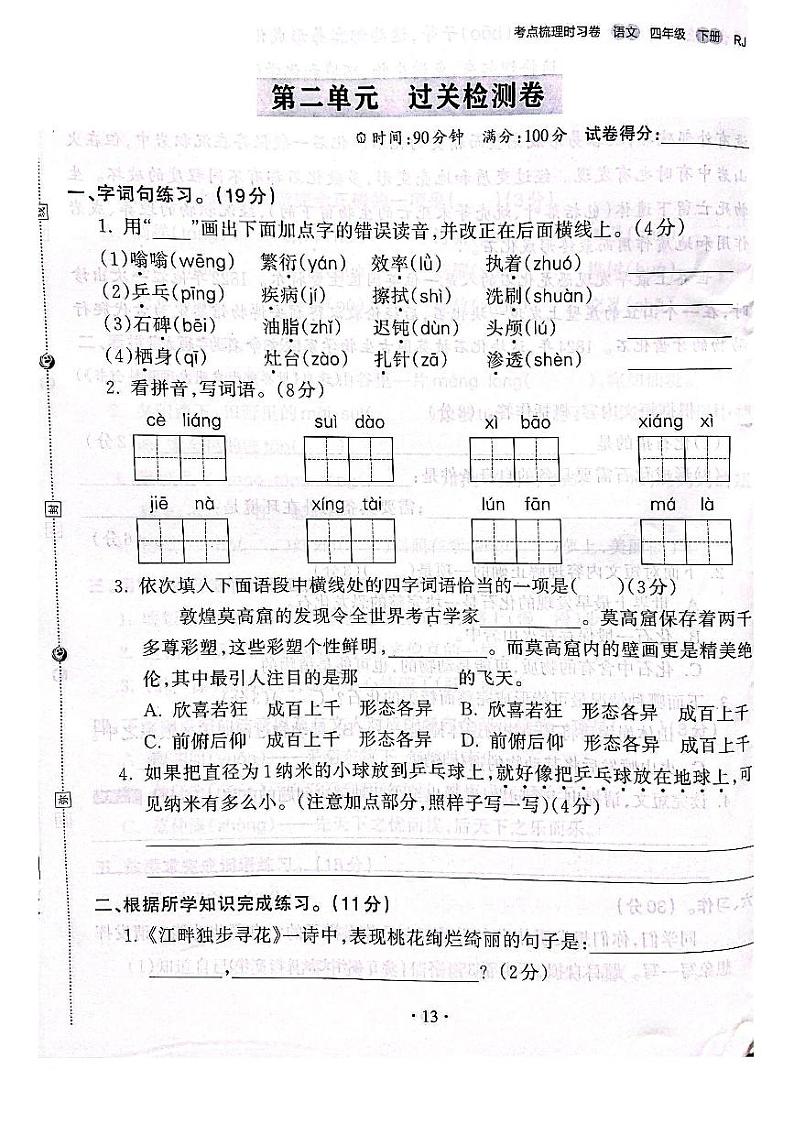 考点梳理时习卷 语文 四年级 下册 RJ
第二单元 过关检测卷
时间:90分钟 满分:100分 试卷得分:
一、字词句练习。(19分)
1. 用“____”画出下面加点字的错误读音,并改正在后面横线上。(4分)
(1)嗡嗡(wēng) 繁衍(yán) 效率(lǜ) 执着(zhuó)
(2)乒乓(pīng) 疾病(jí) 擦拭(shì) 洗刷(shuàn)
(3)石碑(bēi) 油脂(zhǐ) 迟钝(dùn) 头颅(lú)
(4)栖身(qī) 灶台(zào) 扎针(zā) 渗透(shèn)
2. 看拼音,写词语。(8分)
cè liáng suì dào xì bāo xiáng xì
jiē nà xíng tài lún fān má là
3. 依次填入下面语段中横线处的四字词语恰当的一项是( )(3分)
敦煌莫高窟的发现令全世界考古学家________。莫高窟保存着两千
多尊彩塑,这些彩塑个性鲜明,________。而莫高窟内的壁画更是精美绝
伦,其中最引人注目的是那________的飞天。
A. 欣喜若狂 成百上千 形态各异 B. 欣喜若狂 形态各异 成百上千
C. 前俯后仰 成百上千 形态各异 D. 前俯后仰 形态各异 成百上千
4. 如果把直径为1纳米的小球放到乒乓球上,就好像把乒乓球放在地球上,可
见纳米有多么小。(注意加点部分,照样子写一写)(4分)
二、根据所学知识完成练习。(11分)
1.《江畔独步寻花》一诗中,表现桃花绚烂绮丽的句子是:________
________,________________?(2分)
·13·